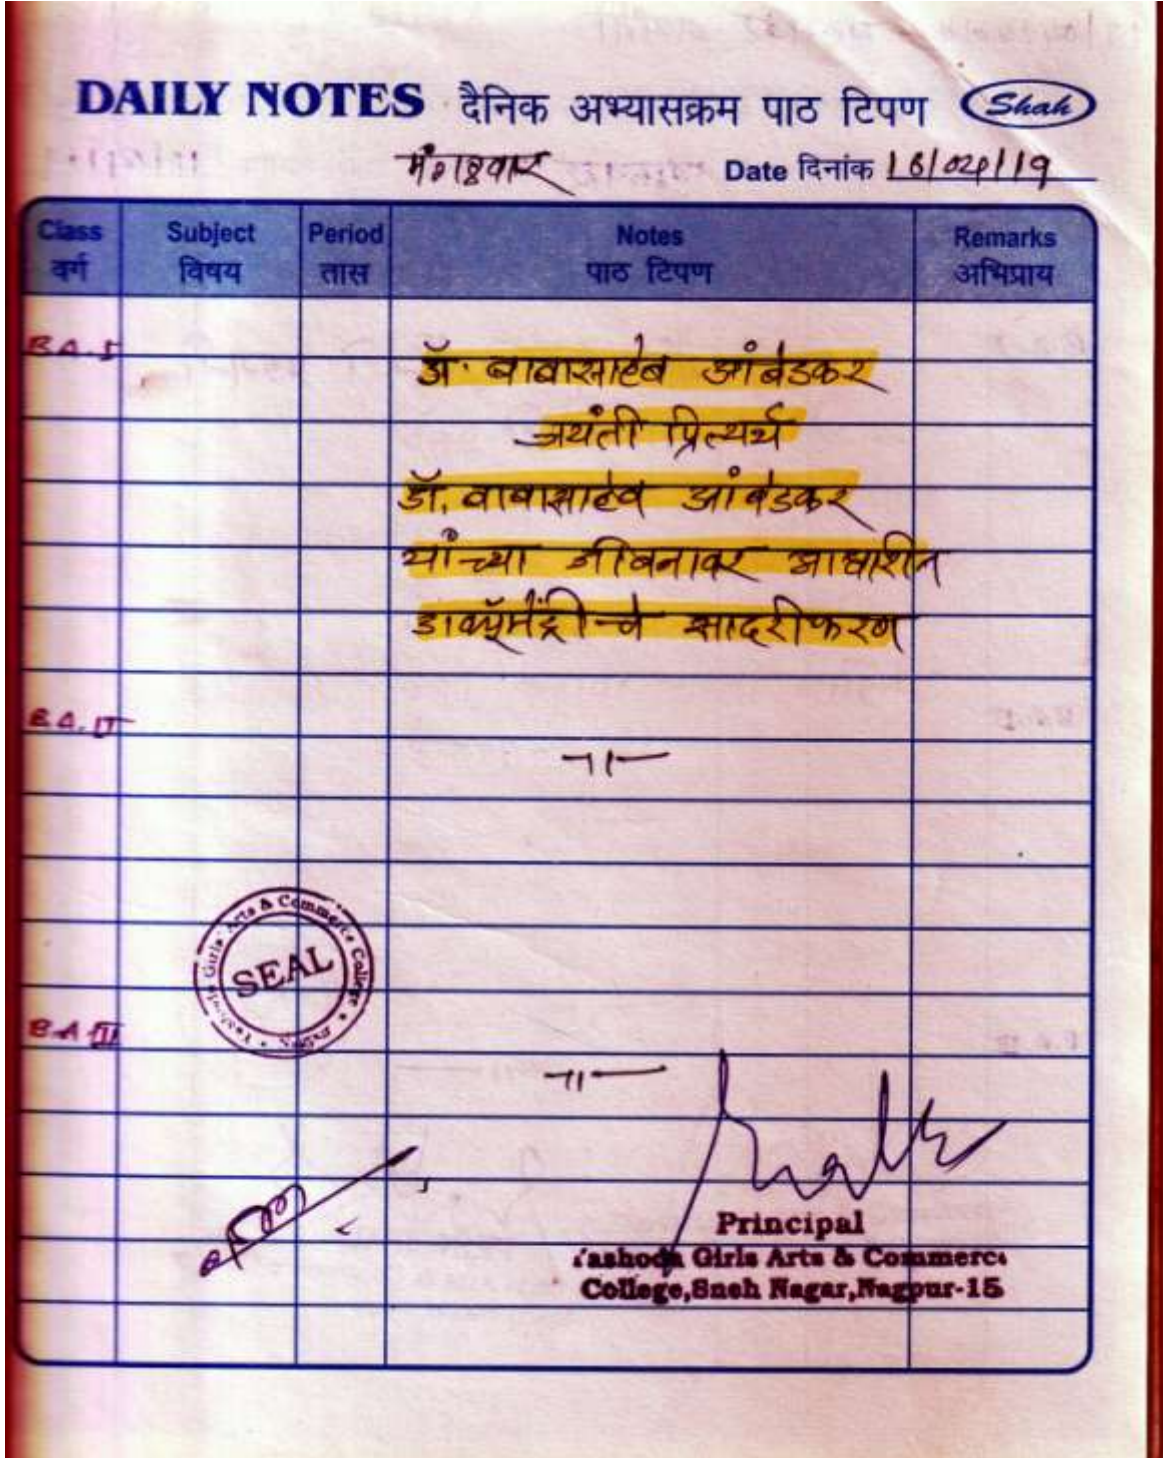 DAILY NOTES दैनिक अभ्यासक्रम पाठ टिपण Shah
मंगळवार Date दिनांक 16/04/19
Class Subject Period Notes Remarks
वर्ग विषय तास पाठ टिपण अभिप्राय
B.A.I
डॉ. बाबासाहेब आंबेडकर
जयंती प्रित्यर्थ
डॉ. बाबासाहेब आंबेडकर
यांच्या जीवनावर आधारीत
डाक्यूमेंट्री चे सादरीकरण
B.A.II
-11-
Girls Arts & Commerce College
SEAL
B.A III
-11-
Principal
Yashoda Girls Arts & Commerce
College,Sneh Nagar,Nagpur-15